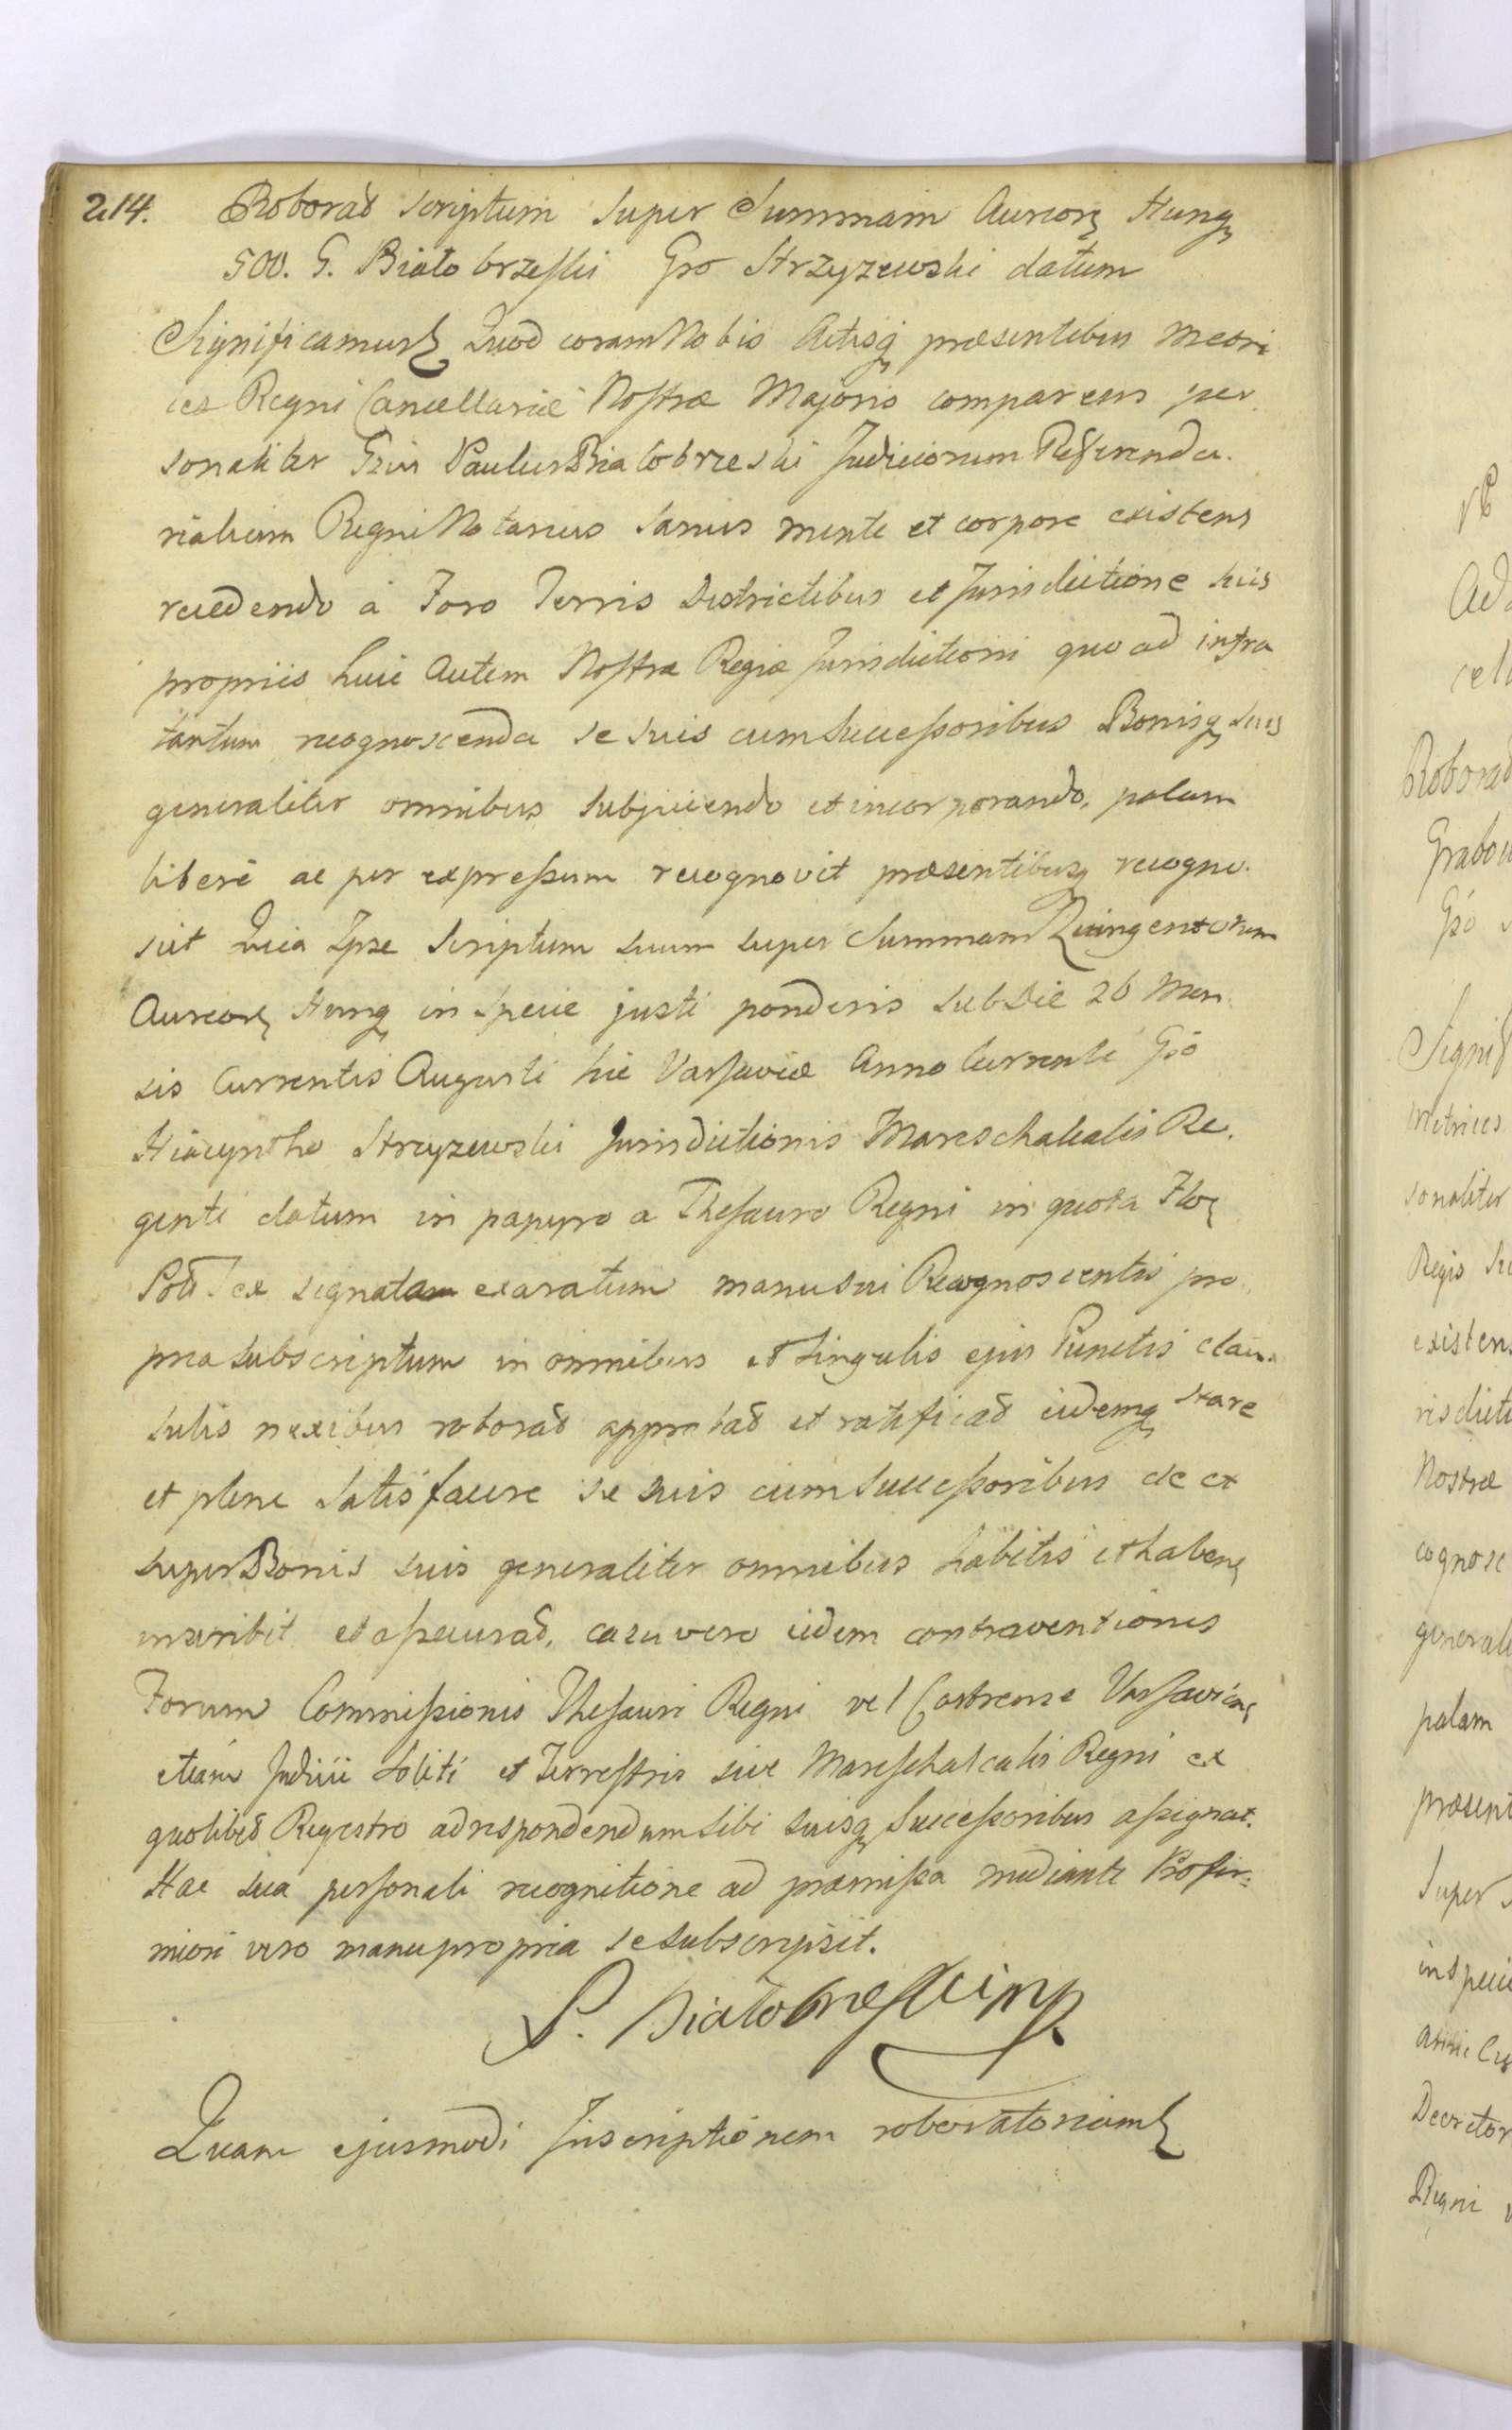 214. Roborat scriptum super Summam Aureorꝝ Hungꝫ
500. G. Białobrzeski Gso Strzyzewski datum
Significamusꝫ Quod coram Nobis Actisqꝫ præsentibus Metri
ces Regni Cancellariæ Nostræ Majoris comparens per
sonaliter Gsus Paulus Białobrzeski Judiciorum Referenda.
rialium Regni Notarius sanus mente et corpore existens
recedendo à Foro Terris Districtibus et Jurisdictione suis
propriis huic autem Nostræ Regiæ Jurisdictioni quo ad infra
tantum recognoscenda se suis cum Successoribus Bonisqꝫ suis
generaliter omnibus subjiciendo et incorporando, palam
liberè ac per expressum recognovit præsentibusqꝫ recogno.
scit Quia Ipse Scriptum suum super Summam Quingentorum
Aureorꝝ Hungꝫ in specie justi ponderis sub Die 26 Men.
sis Currentis Augusti hic Varsaviæ Anno Currente Gso
Hiacyntho Strzyzewski Jurisdictionis Mareschalcalis Re.
genti datum in papyro a Thesauro Regni in quota Floꝝ
Poll. ex signatam exaratum manu sui Recognoscentis pro
pria subscriptum in omnibus et singulis ejus Punctis clau.
sulis nexibus roborat approbat et ratificat eidemqꝫ stare
et plene satisfacere se suis cum Successoribus de et
super Bonis suis generaliter omnibus habitis et habenꝫ
inscribit et assecurat, casu vero eidem contraventionis
Forum Commissionis Thesauri Regni vel Castrense Varsavienꝫ
etiam Judicii soliti et Terrestris sive Mareschalcalis Regni ex
quolibet Regestro ad respondendum sibi suisqꝫ Successoribus assignat.
Hac sua personali recognitione ad præmissa mediante Pro fir.
miori vero manu propria se subscripsit.
P. Białobrzeski mp
Quam ejusmodi Inscriptionem roboratoriamꝫ